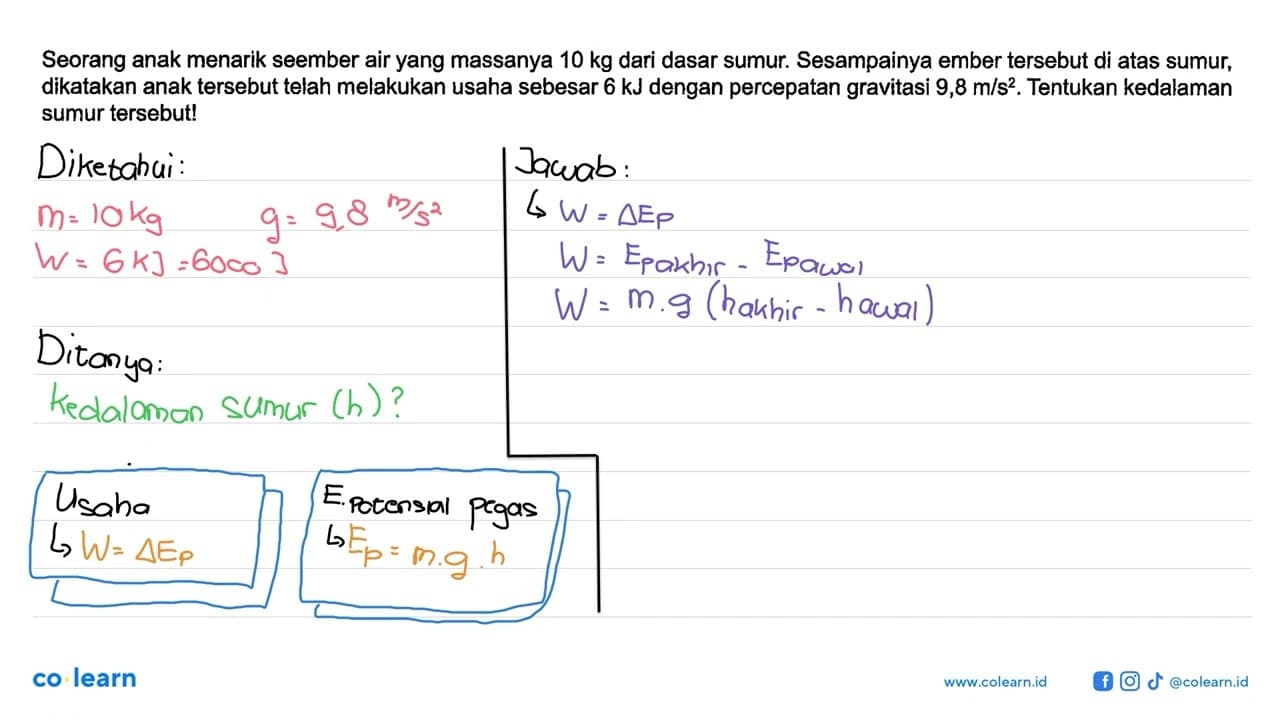 Seorang anak menarik seember air yang massanya 10 kg dari dasar sumur. Sesampainya ember tersebut di atas sumur,
dikatakan anak tersebut telah melakukan usaha sebesar 6 kJ dengan percepatan gravitasi 9,8 m/s². Tentukan kedalaman
sumur tersebut!
Diketahui:
m = 10 kg g = 9,8 m/s²
W = 6 KJ = 6000 J
Ditanya:
Kedalaman sumur (h)?
Usaha
↳ W = ΔEp
E. Potensial pegas
↳ Ep = m.g.h
Jawab:
↳ W = ΔEp
W = Epakhir - Epawal
W = m.g (hakhir - hawal)
co learn
www.colearn.id
@colearn.id